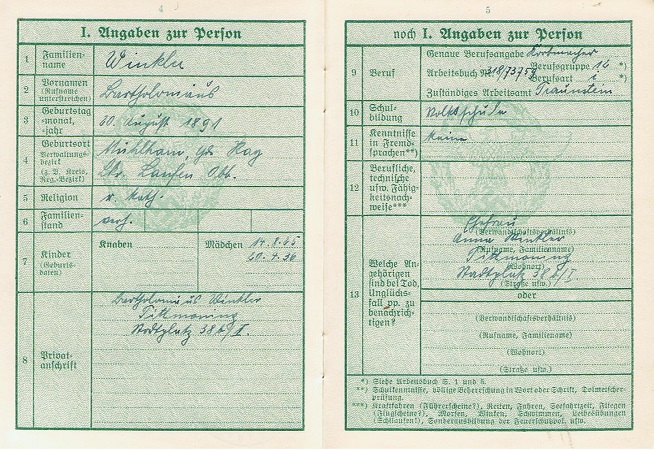 4
I. Angaben zur Person
1 Familien-
name
Winkler
2 Vornamen
(Rufname
unterstreichen)
Bartholomäus
3 Geburtstag
-monat,
-jahr
30. August 1891
4 Geburtsort
Verwaltungs-
bezirk
(z. B. Kreis,
Reg.-Bezirk)
Mühlham,
Laufen Obb.
5 Religion
r. kath.
6 Familien-
stand
verh.
7 Kinder
(Geburts-
daten)
Knaben
Mädchen
20.4.36
8 Privat-
anschrift
Bartholomäus Winkler
Tittmoning
Stadtplatz 38 b/I.
5
noch I. Angaben zur Person
9 Beruf
Genaue Berufsangabe Korbmacher
Arbeitsbuch Nr.
Berufsgruppe 14 *)
Berufsart i *)
Zuständiges Arbeitsamt Traunstein
10 Schul-
bildung
Volksschule
11 Kenntnisse
in Fremd-
sprachen**)
keine
12 Berufliche,
technische
usw. Fähig-
keitsnach-
weise***
13 Welche An-
gehörigen
sind bei Tod,
Unglücks-
fall pp. zu
benachrich-
tigen?
Ehefrau
(Verwandtschaftsverhältnis)
Anna Winkler
(Rufname, Familienname)
Tittmoning
(Wohnort)
Stadtplatz 38 b/I
(Straße usw.)
oder
(Verwandtschaftsverhältnis)
(Rufname, Familienname)
(Wohnort)
(Straße usw.)
*) Siehe Arbeitsbuch S. 1 und 5.
**) Schulkenntnisse, völlige Beherrschung in Wort oder Schrift, Dolmetscher-
prüfung.
***) Kraftfahren (Führerscheine?), Reiten, Fahren, Seefahrtzeit, Fliegen
(Flugscheine?), Morsen, Winken, Schwimmen, Leibesübungen
(Skilaufen!), Sonderausbildung der Feuerschutzpol. usw.